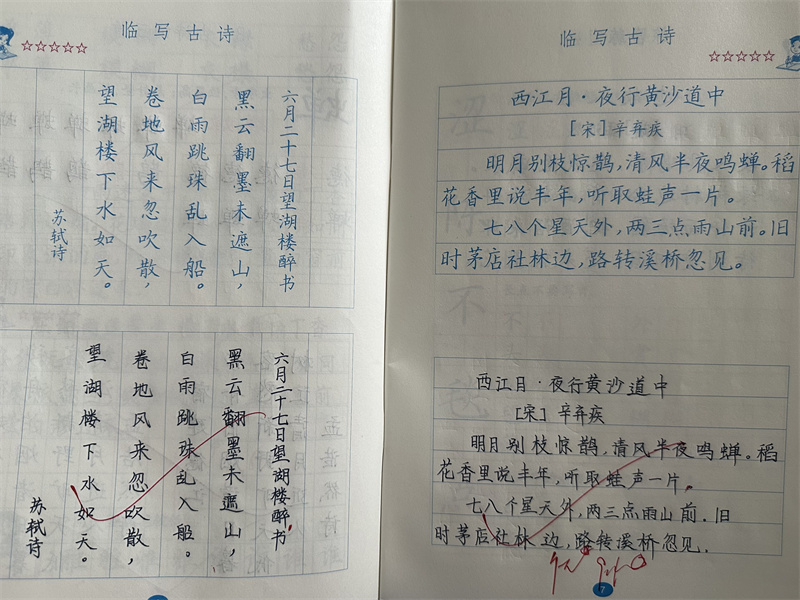 临写古诗
六月二十七日望湖楼醉书
黑云翻墨未遮山，
白雨跳珠乱入船。
卷地风来忽吹散，
望湖楼下水如天。
苏轼诗
六月二十七日望湖楼醉书
黑云翻墨未遮山，
白雨跳珠乱入船。
卷地风来忽吹散，
望湖楼下水如天。
苏轼诗
临写古诗
西江月·夜行黄沙道中
[宋]辛弃疾
明月别枝惊鹊，清风半夜鸣蝉。稻
花香里说丰年，听取蛙声一片。
七八个星天外，两三点雨山前。旧
时茅店社林边，路转溪桥忽见。
西江月·夜行黄沙道中
[宋]辛弃疾
明月别枝惊鹊，清风半夜鸣蝉。稻
花香里说丰年，听取蛙声一片。
七八个星天外，两三点雨山前.旧
时茅店社林边，路转溪桥忽见.
7